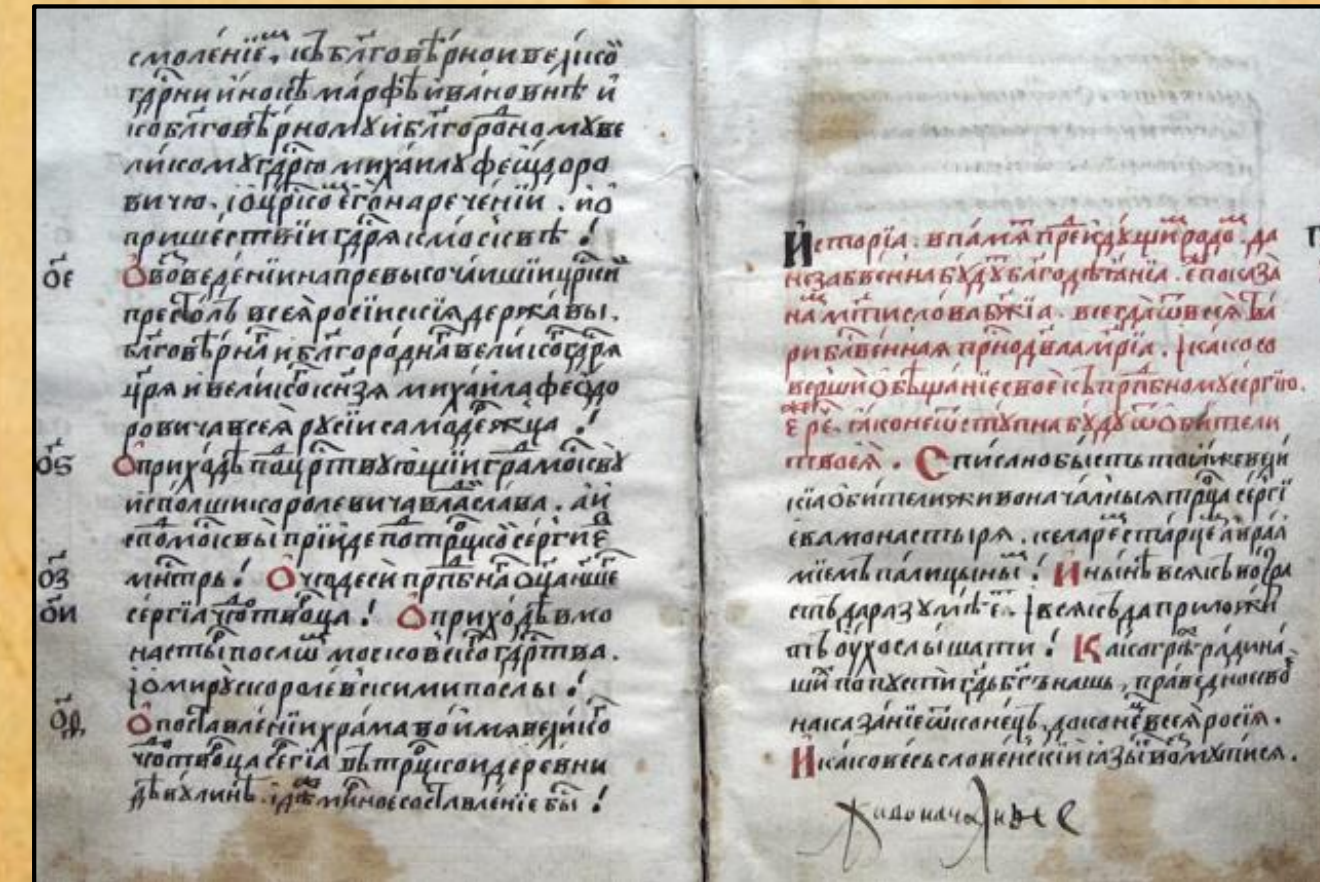 смоленїе, къ бл҃говѣрнои великои
гдрни и҆нокѣ марѳѣ и҆вановнѣ и҆
ко бл҃говѣрномꙋ и бл҃городномꙋ ве
ликомꙋ гдрю михаилꙋ ѳеѡдоро
вичю. і о црско его нареченїи. и о
пришествїи гдря к москвѣ :
о҃е О возведенїи на превысочаишїи црски
престолъ всеѧ росїискїѧ державы.
бл҃говѣрна и бл҃городна велико гдрѧ
црѧ и велико кнзѧ михаила ѳеодо
ровича всеѧ рꙋсїи самодержца :
о҃ѕ О приходѣ по црствꙋющїи гра москвꙋ
ис полши королевича владислава. и
с по москвы прїиде по троцко сергие
мнтрь : О чюдеси прпбна оца нше
о҃з
о҃и сергїа чюдотворца : О приходѣ в мо
насты послѡ московско гдрства.
і о мирꙋ с королевскими послы :
о҃ѳ О поставленїи храма во имѧ велико
чюдотворца сергїа въ троцкои деревни
деꙋлинѣ. мирное составленїе бы :
Исторїа. в памѧ предꙋщи родо. да
незабвенна бꙋдꙋ бл҃годѣанїа. є҆ показа
на мти слова бжїа. всегда ѿ всеѧ тва
ри блвеннаѧ прнодва мрїа. і како со
верши обѣщанїе свое къ прпбномꙋ сергїю.
є҆ ре. ꙗко неѿстꙋпна бꙋдꙋ ѿ обители
твоеѧ. Списано бысть тоѧже вели
кїа обители живоначалныѧ трца сергї
ева монастырѧ. келаре старце авраа
мїемъ палицыны : И нынѣ всѧкъ возра
стъ да разꙋмѣе. і всѧкъ да приложи
тъ оухо слышати : Како грѣ ради на
ши попꙋсти гдь бгъ нашь, праведное сво
наказанїе ѿ конецъ до коне всеѧ росїѧ.
И како весь словенскїи ꙗзы возмꙋтисѧ.